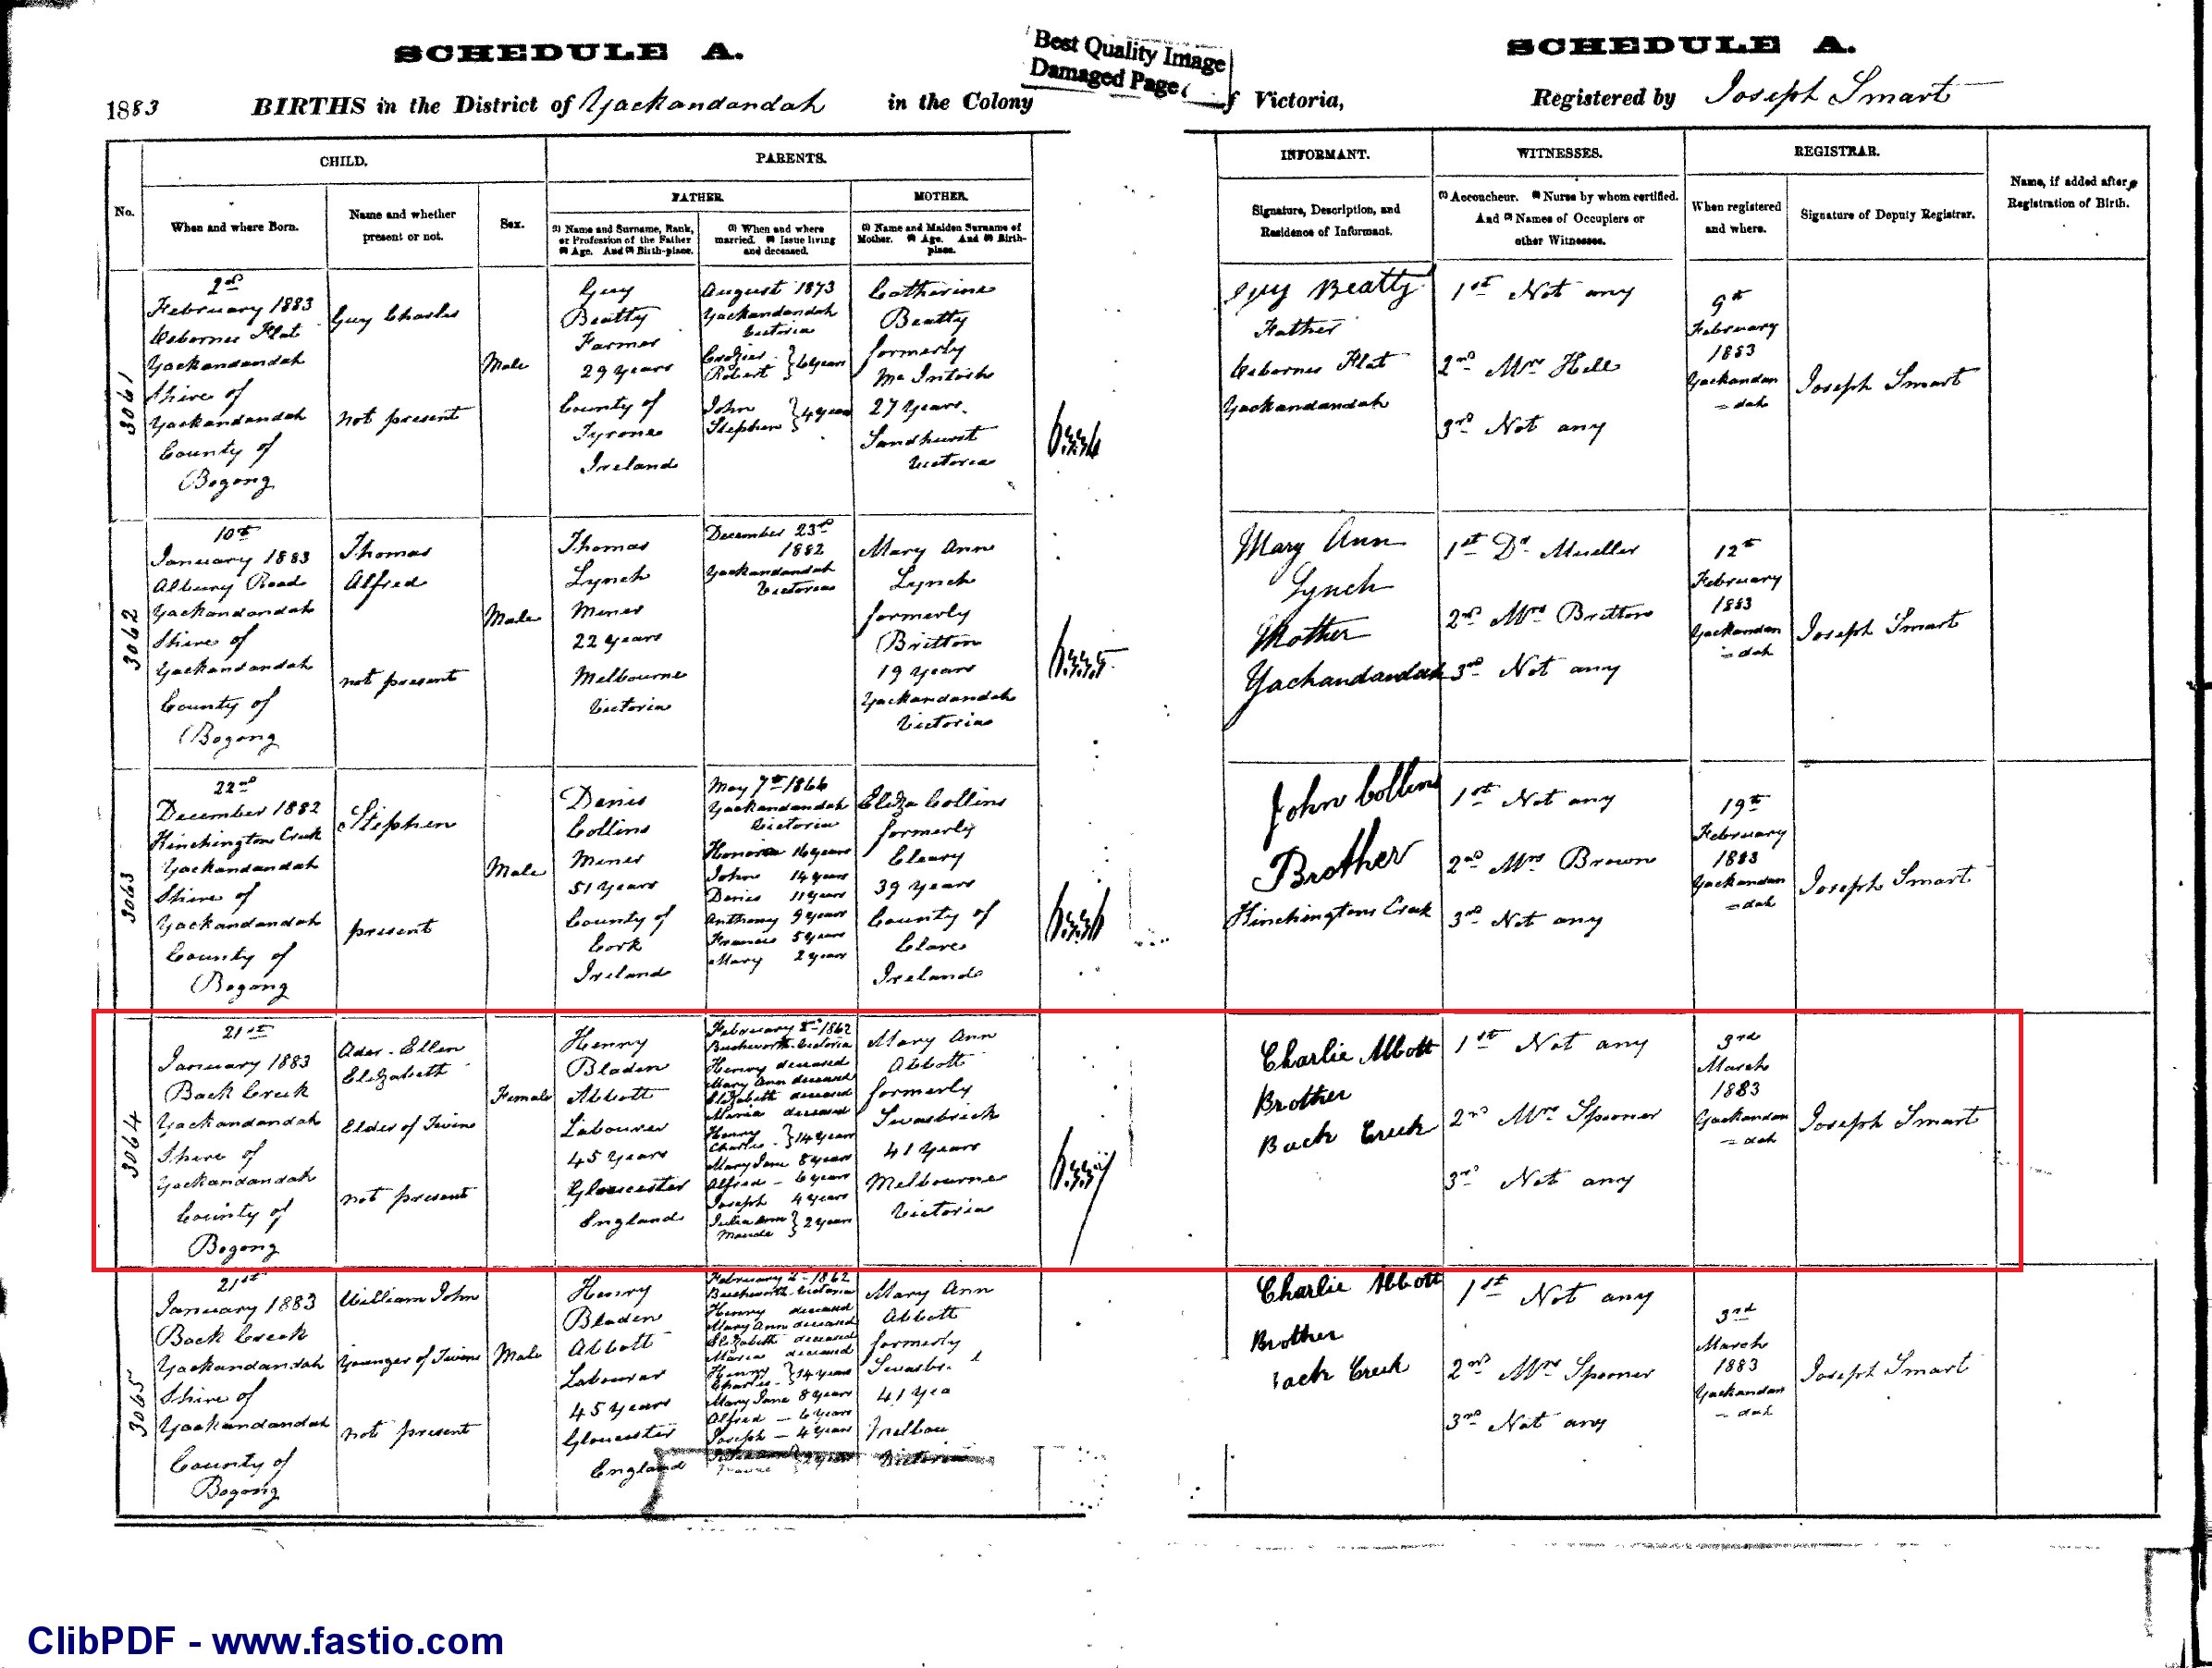 SCHEDULE A.
Best Quality Image
Damaged Page
SCHEDULE A.
1883 BIRTHS in the District of Yackandandah in the Colony
f Victoria,
Registered by Joseph Smart
No.
CHILD.
When and where Born.
Name and whether
present or not.
Sex.
PARENTS.
FATHER.
(1) Name and Surname, Rank,
or Profession of the Father
(2) Age. And (3) Birth-place.
(1) When and where
married. (2) Issue living
and deceased.
MOTHER.
(1) Name and Maiden Surname of
Mother. (2) Age. And (3) Birth-
place.
INFORMANT.
Signature, Description, and
Residence of Informant.
WITNESSES.
(1) Accoucheur. (2) Nurse by whom certified.
And (3) Names of Occupiers or
other Witnesses.
REGISTRAR.
When registered
and where.
Signature of Deputy Registrar.
Name, if added after
Registration of Birth.
3061
2nd
February 1883
Osbornes Flat
Yackandandah
Shire of
Yackandandah
County of
Bogong
Guy Charles
not present
Male
Guy
Beatty
Farmer
29 Years
County of
Tyrone
Ireland
August 1873
Yackandandah
Victoria
Robert } 6 years
John
Stephen } 4 years
Catherine
Beatty
formerly
McIntosh
27 Years
Sandhurst
Victoria
Guy Beatty
Father
Osbornes Flat
Yackandandah
1st Not any
2nd Mrs Hill
3rd Not any
9th
February
1883
Yackandan
=dah
Joseph Smart
3062
10th
January 1883
Albury Road
Yackandandah
Shire of
Yackandandah
County of
Bogong
Thomas
Alfred
not present
Male
Thomas
Lynch
Miner
22 Years
Melbourne
Victoria
December 23rd
1882
Yackandandah
Victoria
Mary Ann
Lynch
formerly
Britton
19 Years
Yackandandah
Victoria
Mary Ann
Lynch
Mother
Yackandandah
1st Dr Mueller
2nd Mrs Britton
3rd Not any
12th
February
1883
Yackandan
=dah
Joseph Smart
3063
22nd
December 1882
Hinchingtons Creek
Yackandandah
Shire of
Yackandandah
County of
Bogong
Stephen
present
Male
Denis
Collins
Miner
51 Years
County of
Cork
Ireland
May 7th 1866
Yackandandah
Victoria
Honora 16 years
John 14 years
Denis 11 years
Anthony 9 years
Francis 5 years
Mary 2 years
Eliza Collins
formerly
Cleary
39 Years
County of
Clare
Ireland
John Collins
Brother
Hinchingtons Creek
1st Not any
2nd Mrs Brown
3rd Not any
19th
February
1883
Yackandan
=dah
Joseph Smart
3064
21st
January 1883
Back Creek
Yackandandah
Shire of
Yackandandah
County of
Bogong
Ader Ellen
Elizabeth
Elder of Twins
not present
Female
Henry
Bladen
Abbott
Labourer
45 Years
Gloucester
England
February 2nd 1862
Beechworth Victoria
Henry deceased
Mary Ann deceased
Elizabeth deceased
Maria deceased
Henry
Charles } 14 years
Mary Jane 8 years
Alfred - 6 years
Joseph 4 years
Julia Ann
Maude } 2 years
Mary Ann
Abbott
formerly
Swasbrick
41 Years
Melbourne
Victoria
Charlie Abbott
Brother
Back Creek
1st Not any
2nd Mrs Spooner
3rd Not any
3rd
March
1883
Yackandan
=dah
Joseph Smart
3065
21st
January 1883
Back Creek
Yackandandah
Shire of
Yackandandah
County of
Bogong
William John
Younger of Twins
not present
Male
Henry
Bladen
Abbott
Labourer
45 Years
Gloucester
England
February 2nd 1862
Beechworth Victoria
Henry deceased
Mary Ann deceased
Elizabeth deceased
Maria deceased
Henry
Charles } 14 years
Mary Jane 8 years
Alfred - 6 years
Joseph - 4 years
2 years
Mary Ann
Abbott
formerly
Swasbr
41 Yea
Melbou
Victoria
Charlie Abbott
Brother
ack Creek
1st Not any
2nd Mrs Spooner
3rd Not any
3rd
March
1883
Yackandan
=dah
Joseph Smart
ClibPDF - www.fastio.com